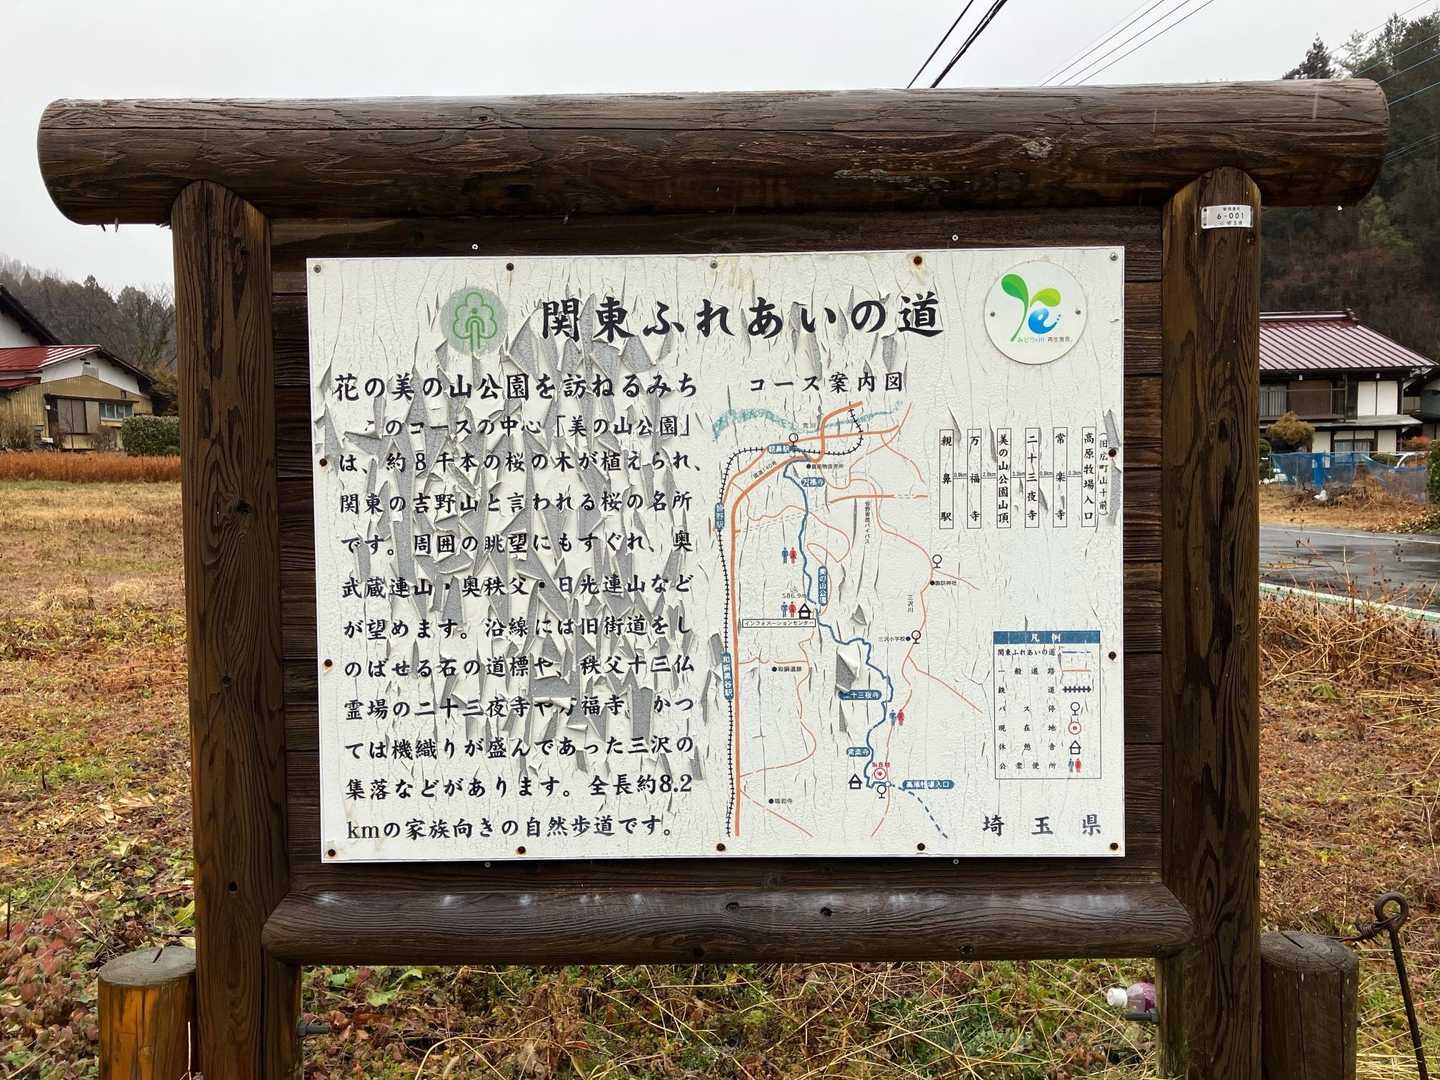 6-001
関東ふれあいの道
みどりと川の再生
埼玉県
花の美の山公園を訪ねるみち
このコースの中心「美の山公園」
は、約8千本の桜の木が植えられ、
関東の吉野山と言われる桜の名所
です。周囲の眺望にもすぐれ、奥
武蔵連山・奥秩父・日光連山など
が望めます。沿線には旧街道をし
のばせる石の道標や、秩父十三仏
霊場の二十三夜寺や万福寺、かつ
ては機織りが盛んであった三沢の
集落などがあります。全長約8.2
kmの家族向きの自然歩道です。
コース案内図
親鼻駅
万福寺
美の山公園山頂
二十三夜寺
常楽寺
高原牧場入口
(旧広町山十前)
荒川
親鼻駅
万福寺
皆野駅
国道140号
皆野寄居バイパス
美の山公園
586.9m
インフォメーションセンター
諏訪神社
三沢川
三沢小学校
和銅遺跡
和銅黒谷駅
二十三夜寺
常楽寺
現在地
高原牧場入口
瑞岩寺
凡例
関東ふれあいの道
一般道路
鉄道
バス停
現在地
休憩舎
公衆便所
埼玉県